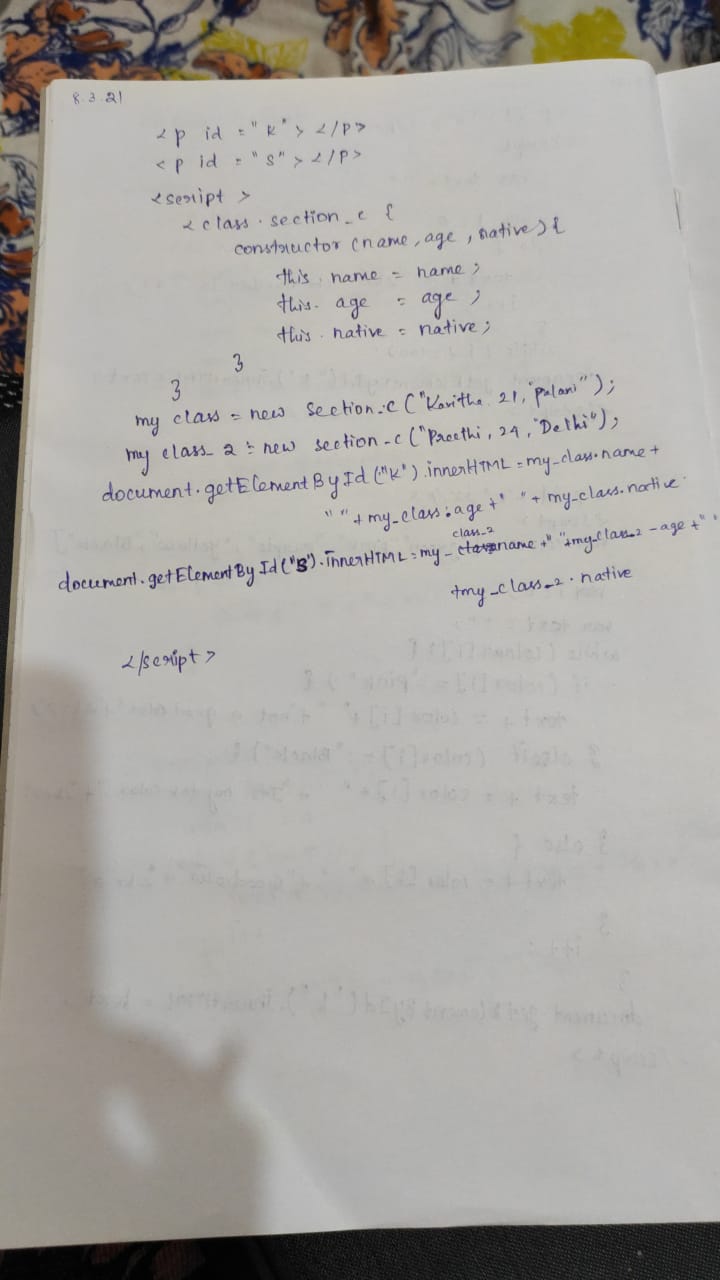 8.3.21
<p id = "K"> </p>
<p id = "S"> </p>
<script>
<class.section_c {
constructor (name, age, native) {
this.name = name;
this.age = age;
this.native = native;
}
}
my class = new section.c ("Kavitha 21, "Palani");
my class_2 = new section-c ("Preethi, 24, "Delhi");
document.getElementById ("K").innerHTML = my-class.name +
" " + my_class.age + " " + my_class.native
class_2
document.getElementById ("S").innerHTML = my-name + " " + my_class_2 - age + " "
+my_class_2.native
</script>